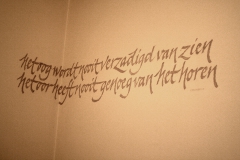 het oog wordt nooit verzadigd van zien
het oor heeft nooit genoeg van het horen